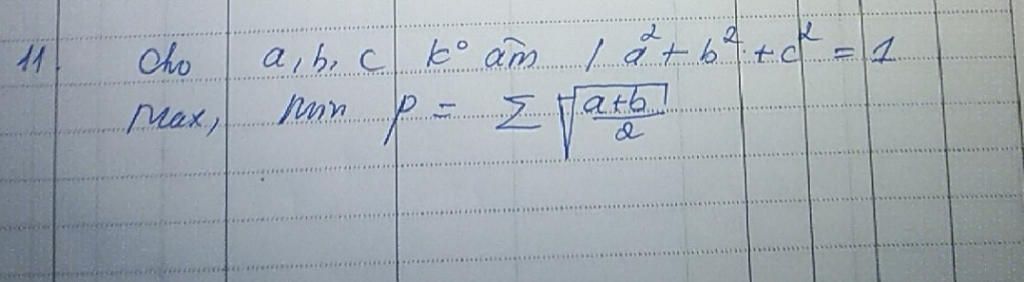 11. Cho a, b, c k° âm / a² + b² + c² = 1
Max, min P = Σ √((a+b)/2)